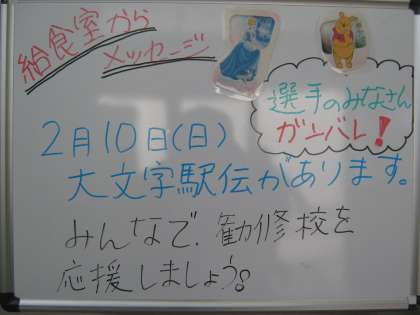 給食室から
メッセージ
選手のみなさん
ガンバレ!
2月10日(日)
大文字駅伝があります。
みんなで、勧修校を
応援しましょう。